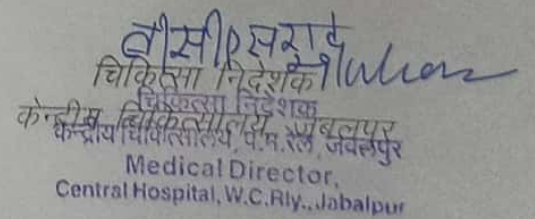 चिकित्सा निदेशक
चिकित्सा निदेशक
केन्द्रीय चिकित्सालय जबलपुर
केन्द्रीय चिकित्सालय, प.म.रेल, जबलपुर
Medical Director,
Central Hospital, W.C.Rly., Jabalpur